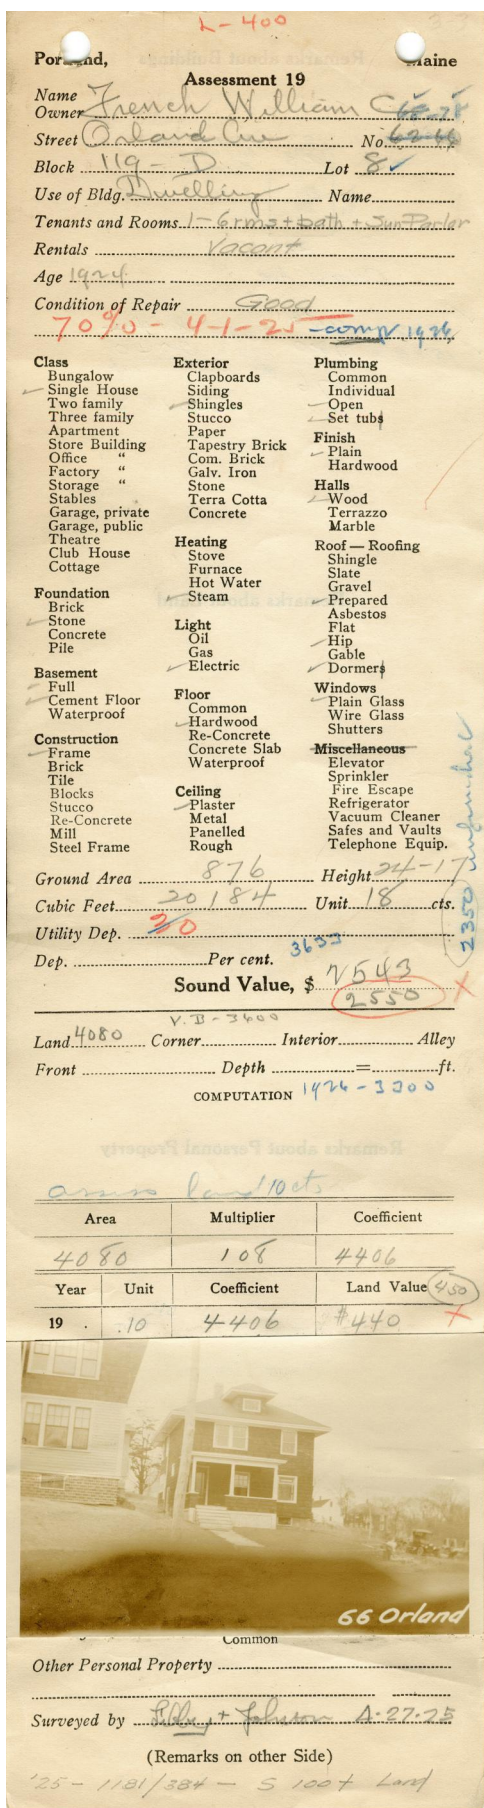 L-400
Portland, Maine
Assessment 19
Name
Owner French William C 68-78
Street Orland Ave No. 62-66
Block 119-D Lot 8
Use of Bldg. Dwelling Name
Tenants and Rooms 1-6 rms + bath + Sun Parlor
Rentals Vacant
Age 1924
Condition of Repair Good
70% - 4-1-25 - comp 1926
Class
Bungalow
Single House
Two family
Three family
Apartment
Store Building
Office "
Factory "
Storage "
Stables
Garage, private
Garage, public
Theatre
Club House
Cottage
Foundation
Brick
Stone
Concrete
Pile
Basement
Full
Cement Floor
Waterproof
Construction
Frame
Brick
Tile
Blocks
Stucco
Re-Concrete
Mill
Steel Frame
Exterior
Clapboards
Siding
Shingles
Stucco
Paper
Tapestry Brick
Com. Brick
Galv. Iron
Stone
Terra Cotta
Concrete
Heating
Stove
Furnace
Hot Water
Steam
Light
Oil
Gas
Electric
Floor
Common
Hardwood
Re-Concrete
Concrete Slab
Waterproof
Ceiling
Plaster
Metal
Panelled
Rough
Plumbing
Common
Individual
Open
Set tubs
Finish
Plain
Hardwood
Halls
Wood
Terrazzo
Marble
Roof — Roofing
Shingle
Slate
Gravel
Prepared
Asbestos
Flat
Hip
Gable
Dormers
Windows
Plain Glass
Wire Glass
Shutters
Miscellaneous
Elevator
Sprinkler
Fire Escape
Refrigerator
Vacuum Cleaner
Safes and Vaults
Telephone Equip.
2350 unfinished
Ground Area 876 Height 24-17
Cubic Feet 20184 Unit 18 cts.
Utility Dep. 30
Dep. Per cent. 3633
Sound Value, $ 2543
2550
V.B-3600
Land 4080 Corner Interior Alley
Front Depth = ft.
COMPUTATION 1926-3300
assess land 10 cts
Area Multiplier Coefficient
4080 108 4406
Year Unit Coefficient Land Value 450
19 . .10 4406 $440
66 Orland
Common
Other Personal Property
Surveyed by Libby + Johnson A-27-25
(Remarks on other Side)
'25 - 1181/384 - S 100+ Land